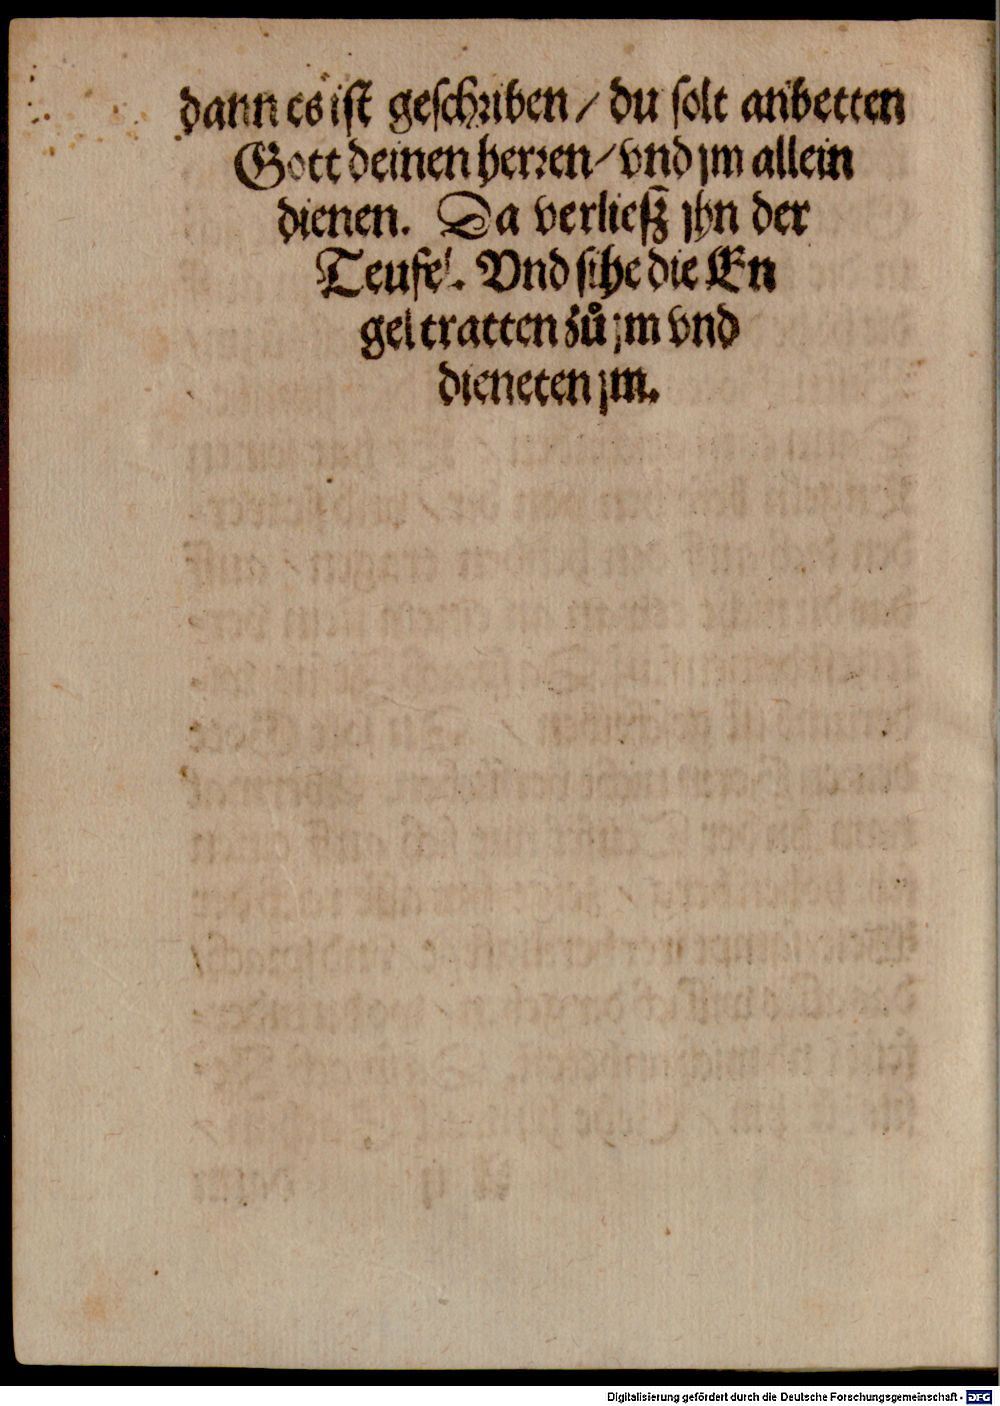 dann es ist geschriben / du solt anbetten
Gott deinen herren / vnd jm allein
dienen. Da verließ jhn der
Teufel. Vnd sihe die En
gel tratten zuͦ jm vnd
dieneten jm.
Digitalisierung gefördert durch die Deutsche Forschungsgemeinschaft - DFG